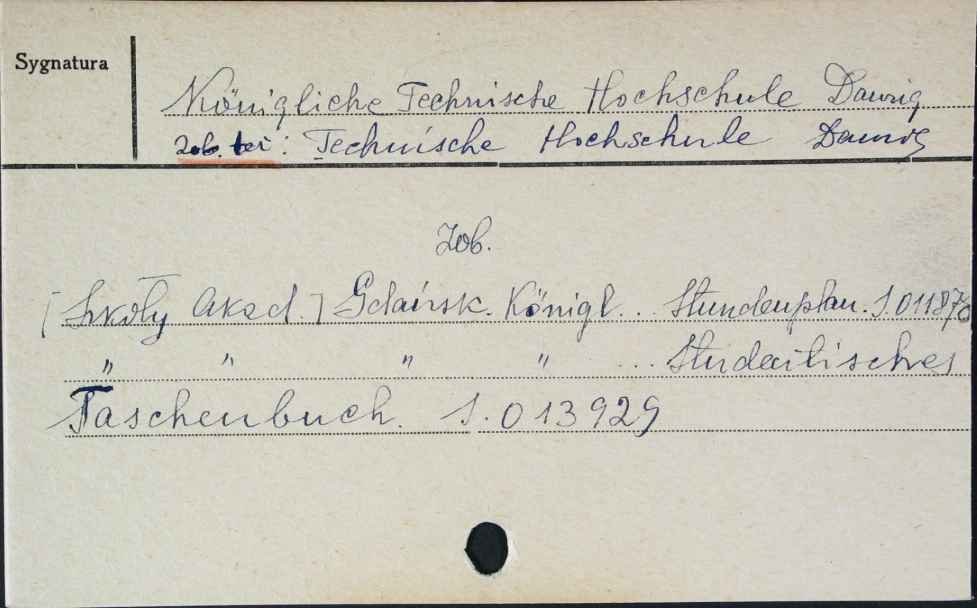 Sygnatura
Königliche Technische Hochschule Danzig
zob. też: Technische Hochschule Danzig
Zob.
[Szkoły Akad.] Gdańsk. Königl... Stundenplan. S.011876
" " " " ... Studentisches
Taschenbuch. S.013929